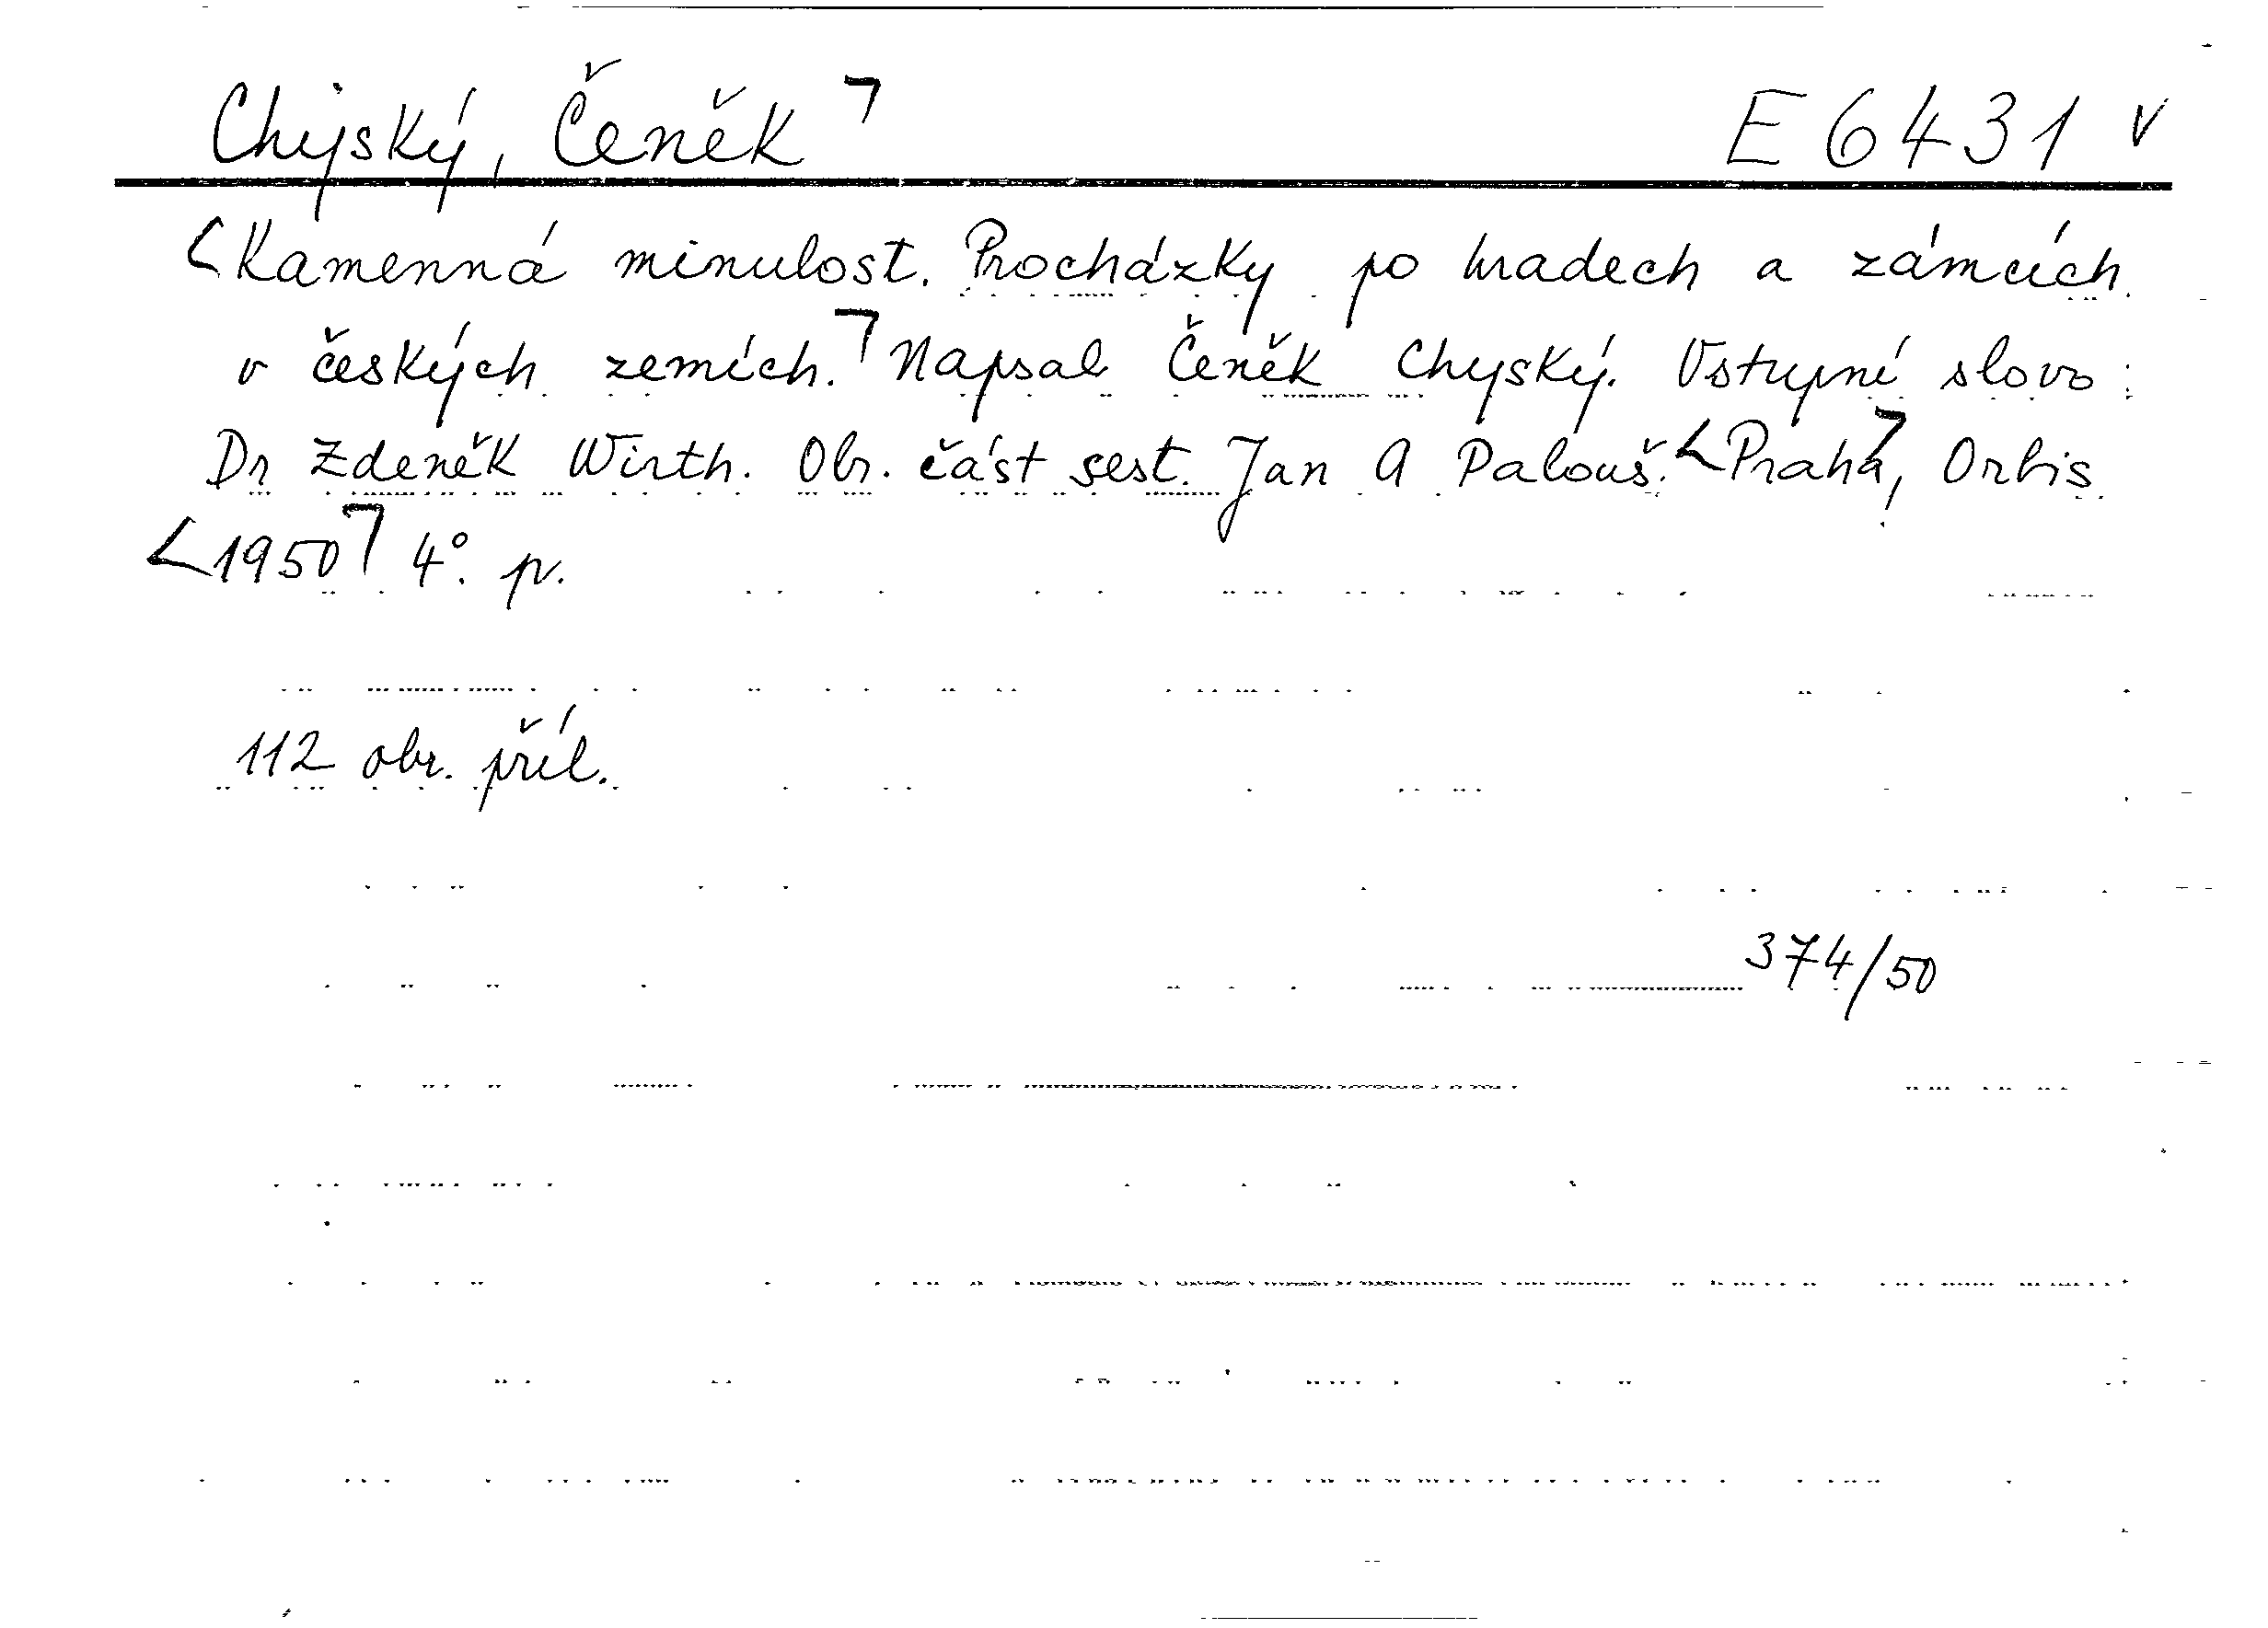 Chyský, Čeněk E 6431 v
Kamenná minulost. Procházky po hradech a zámcích
v českých zemích. Napsal Čeněk Chyský. Vstupní slovo:
Dr Zdeněk Wirth. Obr. část sest. Jan A Palouš. Praha, Orbis
1950 4°. p.
112 obr. příl.
374/50